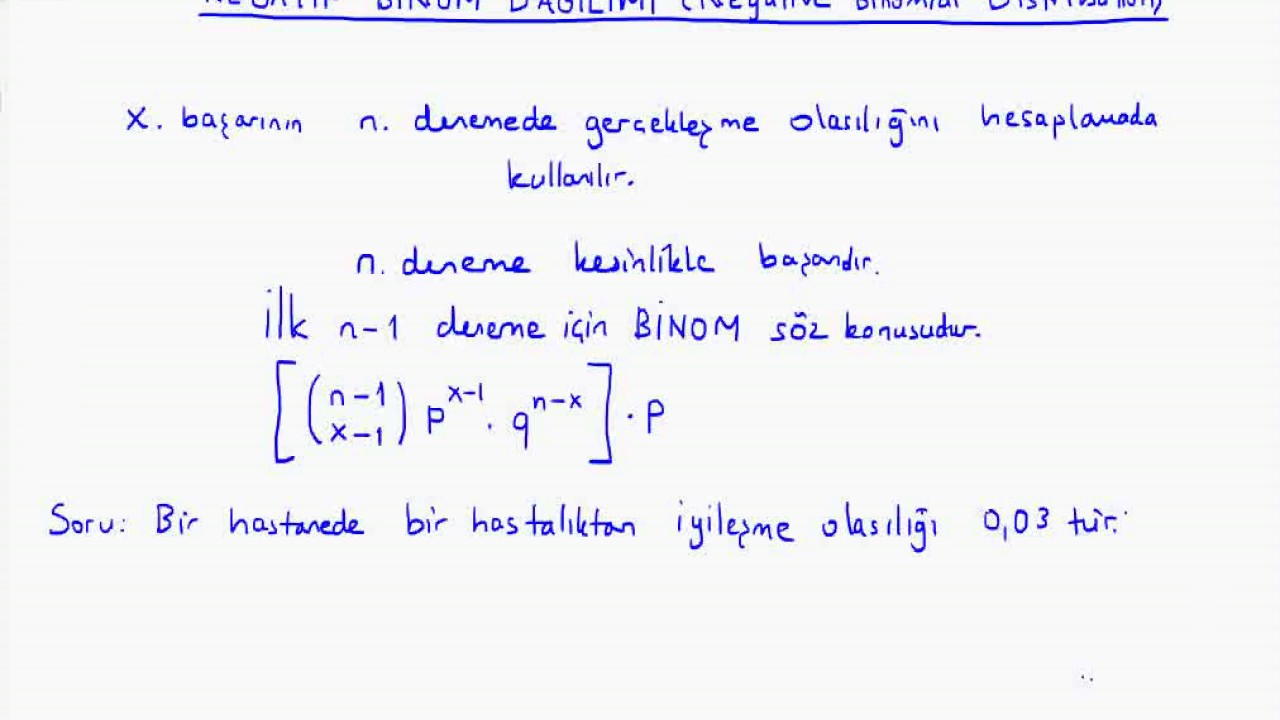 NEGATİF BİNOM DAĞILIMI (Negative Binomial Distribution)
x. başarının n. denemede gerçekleşme olasılığını hesaplamada
kullanılır.
n. deneme kesinlikle başarıdır.
İlk n-1 deneme için BİNOM söz konusudur.
[(n-1 x-1) p^x-1 . q^n-x] . p
Soru: Bir hastanede bir hastalıktan iyileşme olasılığı 0,03 tür.